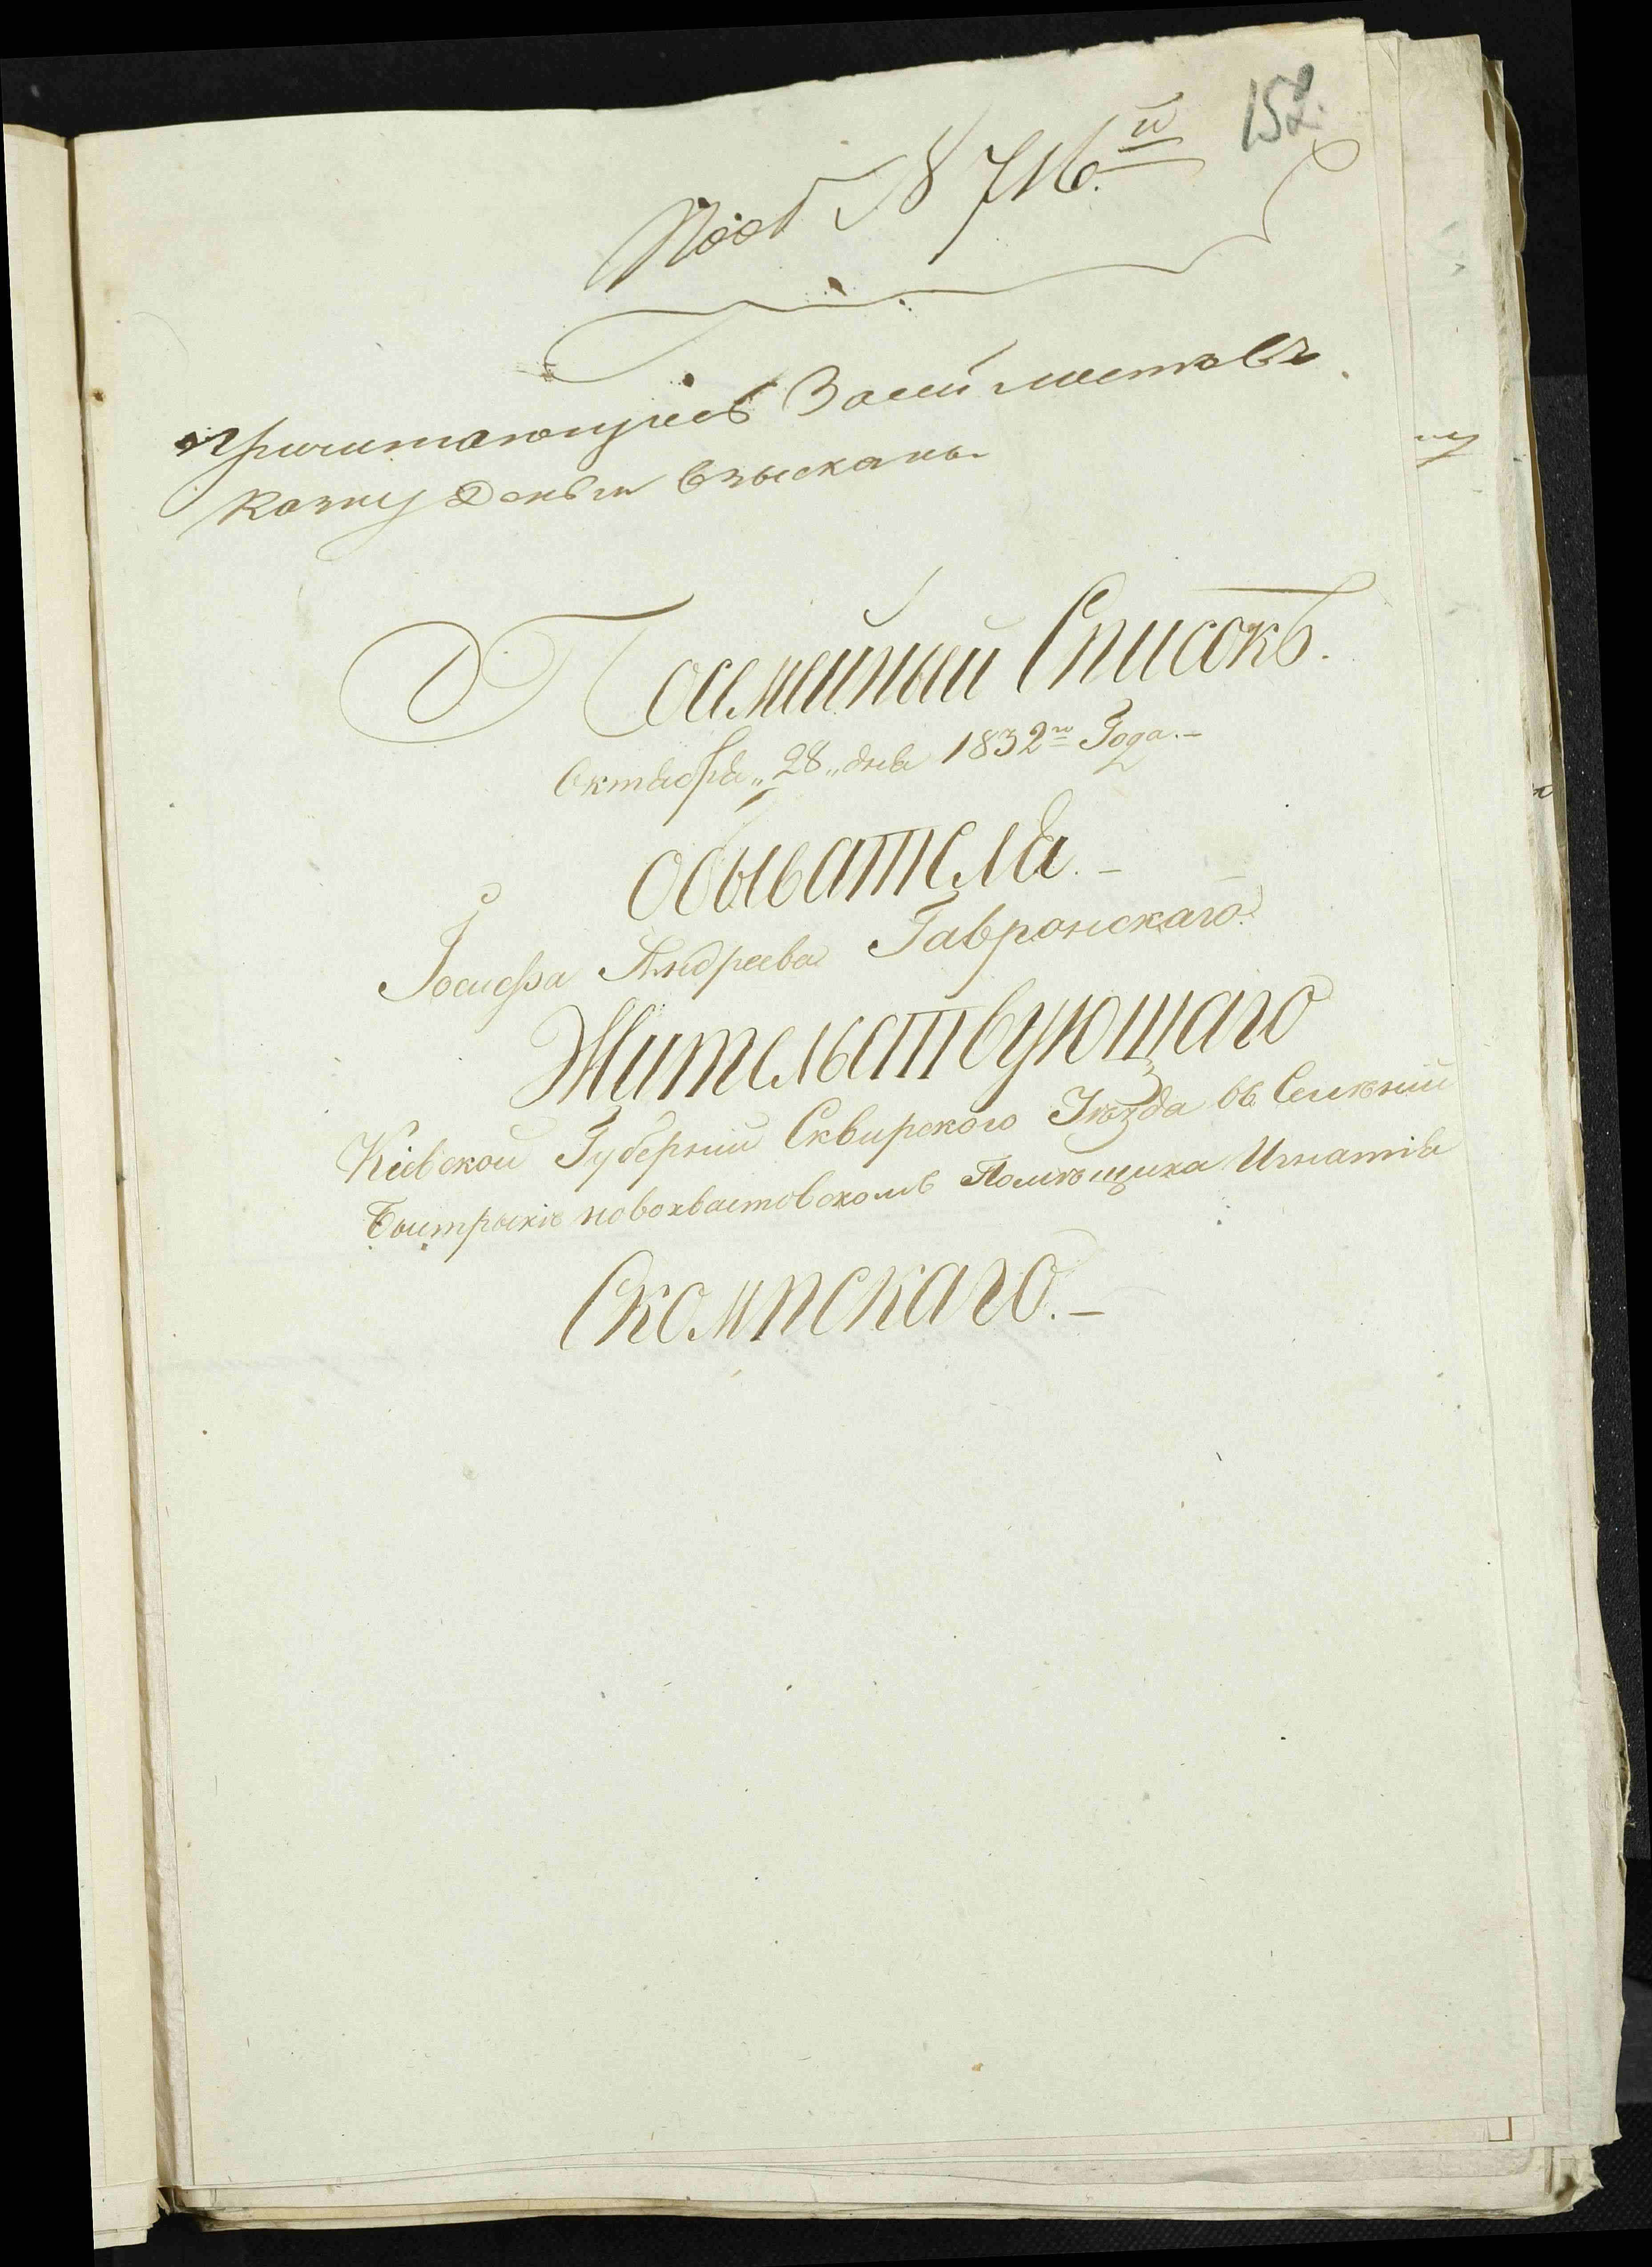 152.
Подъ № 716.й
Причитающiесъ За сей листъ въ
Казну Деньги взысканы
Посемейный Списокъ.
Октября „28„ дня 1832го Года.-
обывателя.-
Iосифа Андреева Гавронскаго.
Жительствующаго
Кiевской Губернии Сквирского Уѣзда въ Селѣнии
Быстрыкiе новохвастовскомъ Помѣщика Игнатiя
Скомпскаго.-